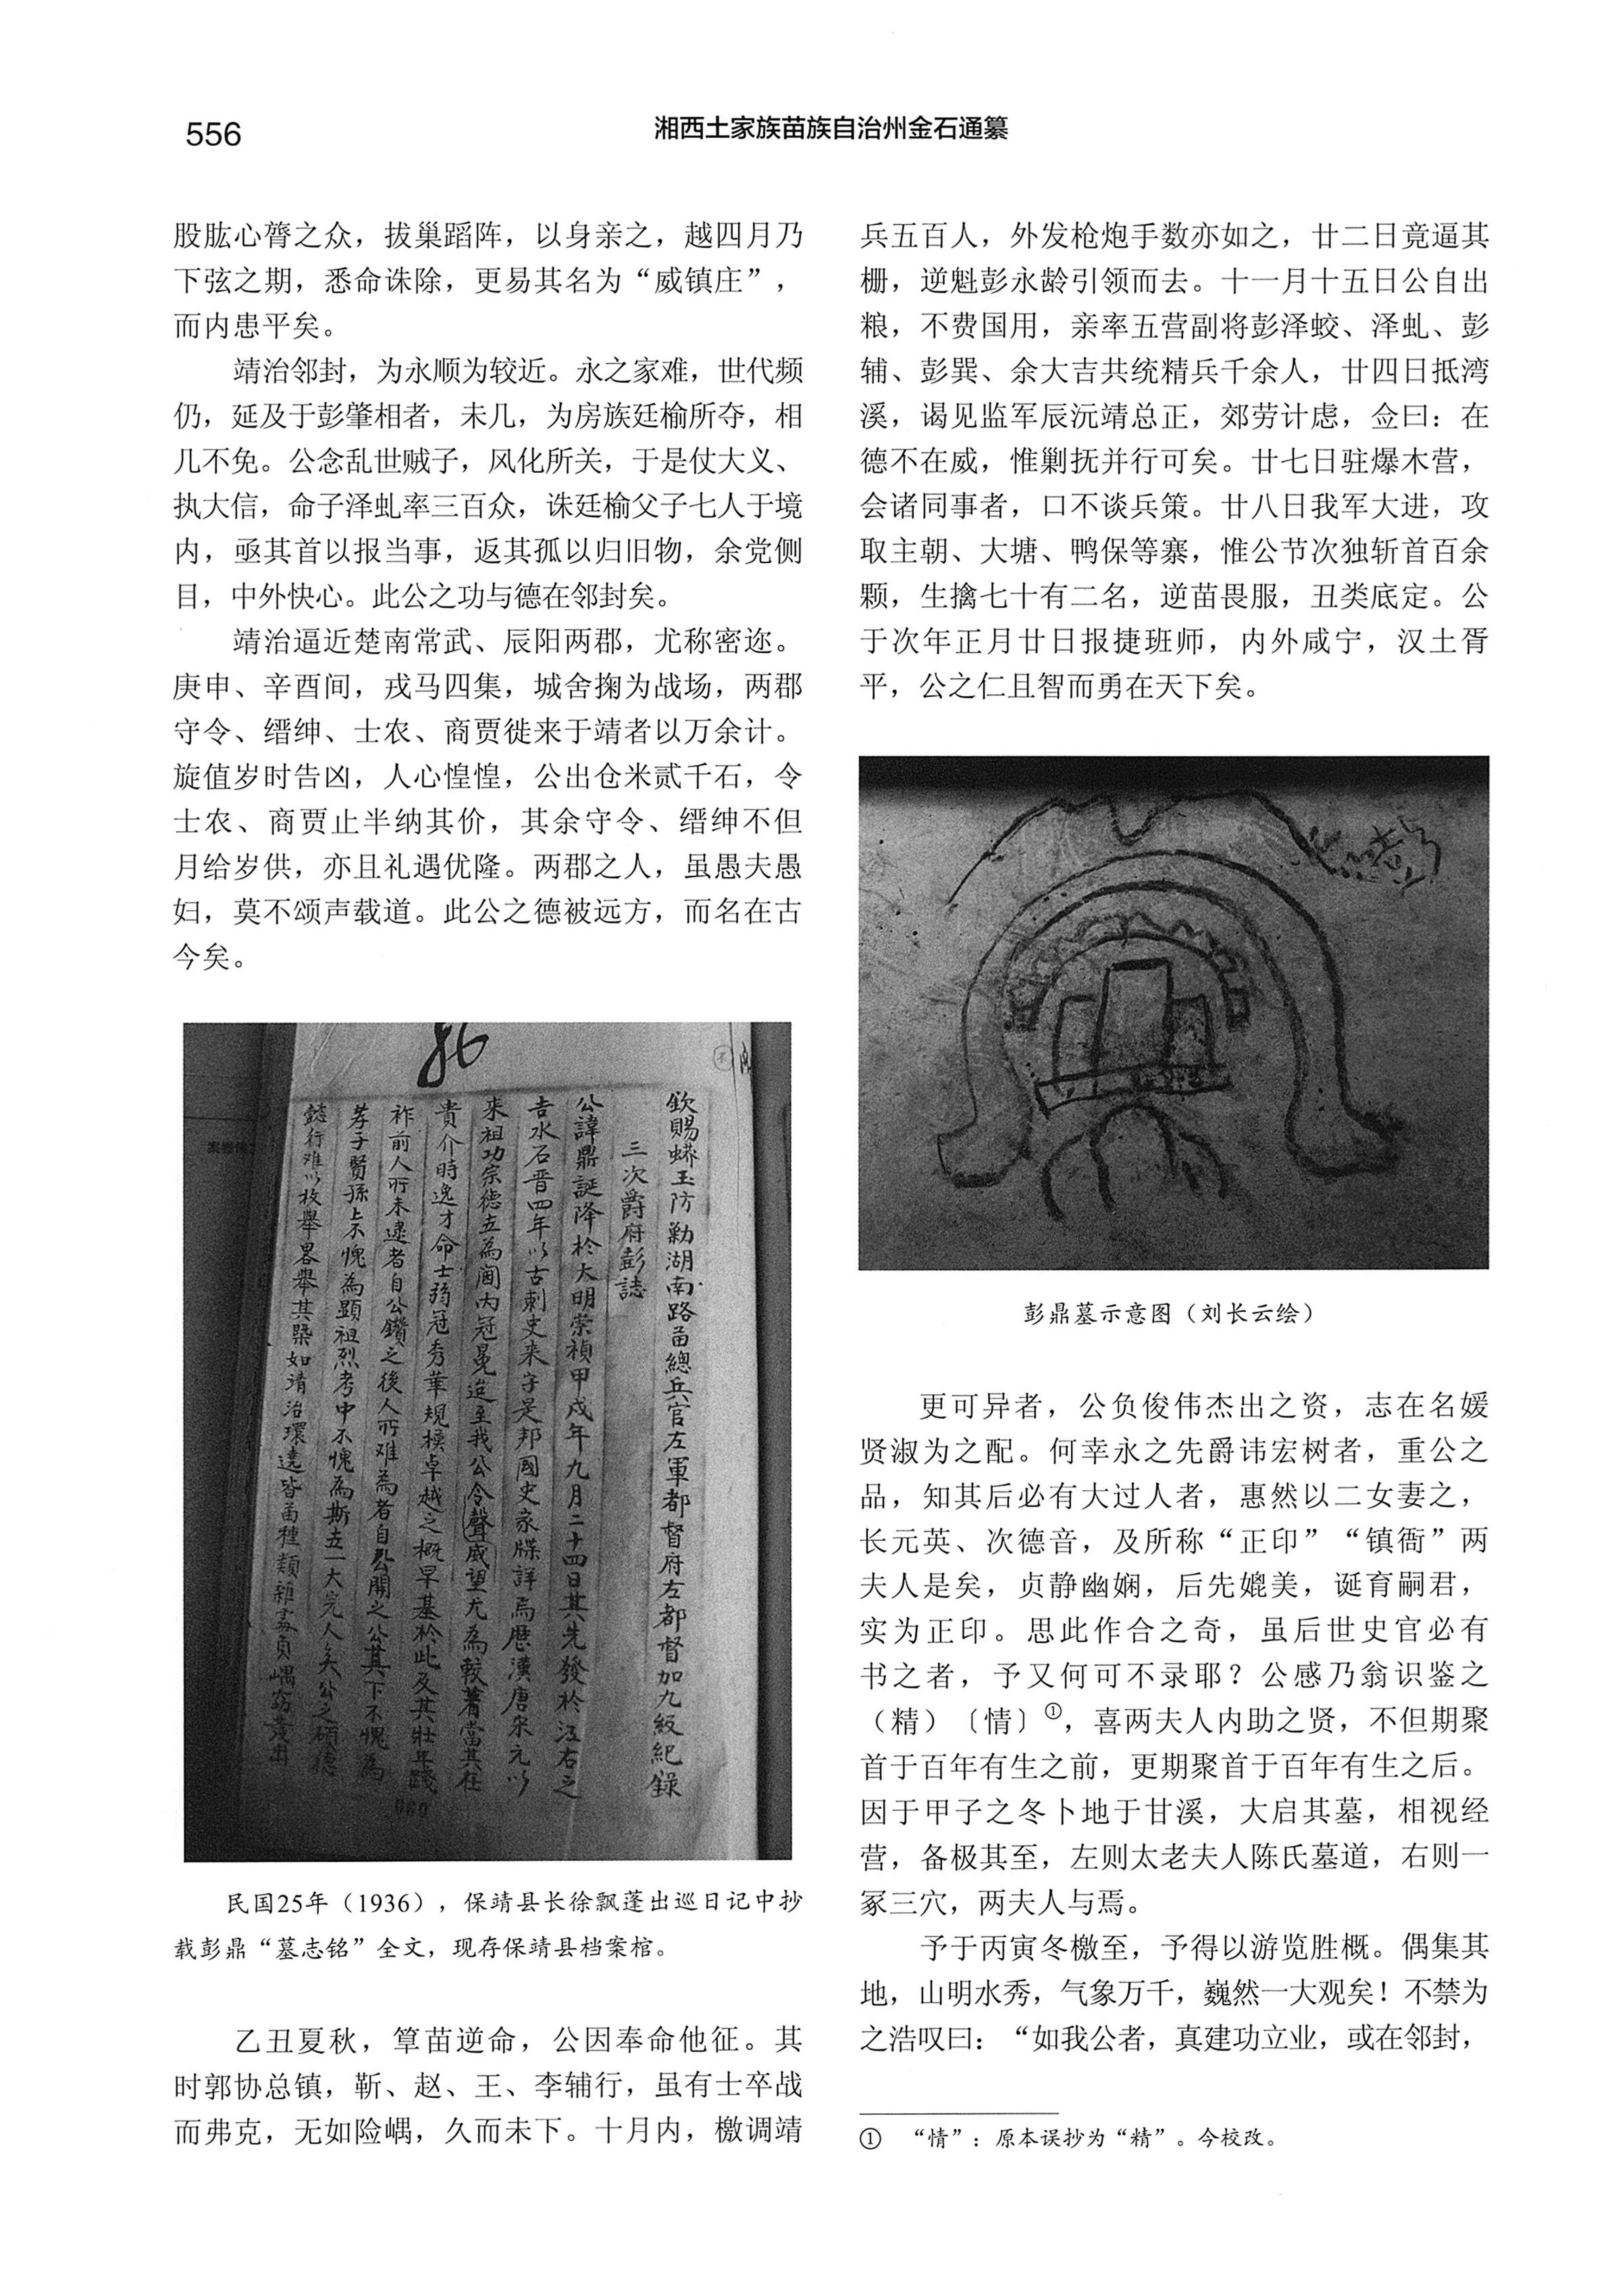 556
湘西土家族苗族自治州金石通纂
股肱心膂之众，拔巢蹈阵，以身亲之，越四月乃
下弦之期，悉命诛除，更易其名为“威镇庄”，
而内患平矣。
靖治邻封，为永顺为较近。永之家难，世代频
仍，延及于彭肇相者，未几，为房族廷榆所夺，相
几不免。公念乱世贼子，风化所关，于是仗大义、
执大信，命子泽虬率三百众，诛廷榆父子七人于境
内，亟其首以报当事，返其孤以归旧物，余党侧
目，中外快心。此公之功与德在邻封矣。
靖治逼近楚南常武、辰阳两郡，尤称密迩。
庚申、辛酉间，戎马四集，城舍掬为战场，两郡
守令、缙绅、士农、商贾徙来于靖者以万余计。
旋值岁时告凶，人心惶惶，公出仓米贰千石，令
士农、商贾止半纳其价，其余守令、缙绅不但
月给岁供，亦且礼遇优隆。两郡之人，虽愚夫愚
妇，莫不颂声载道。此公之德被远方，而名在古
今矣。
86
欽賜蟒玉防勦湖南路苗總兵官左軍都督府左都督加九級紀錄
三次爵府彭誌
公諱鼎誕降於大明崇禎甲戍年九月二十四日其先發於江右之
吉水石晋四年以古刺史来守是邦國史家牒詳焉歷漢唐宋元以
来祖功宗德立為閫内冠冕迨至我公令聲威望尤為較著當其在
貴介時逸才命士弱冠秀華規模卓越之概早基於此及其壮年踐
祚前人所未逮者自公鑽之後人所难為者自公開之公其下不愧為
孝子賢孫上不愧為顯祖烈考中不愧為斯立一大完人矣公之碩德
懿行难以枚舉畧舉其槩如靖治環遶皆苗種類雜處負嵎窃發出
080
民国25年（1936），保靖县长徐飘蓬出巡日记中抄
载彭鼎“墓志铭”全文，现存保靖县档案棺。
乙丑夏秋，筸苗逆命，公因奉命他征。其
时郭协总镇，靳、赵、王、李辅行，虽有士卒战
而弗克，无如险嵎，久而未下。十月内，檄调靖
兵五百人，外发枪炮手数亦如之，廿二日竟逼其
栅，逆魁彭永龄引领而去。十一月十五日公自出
粮，不费国用，亲率五营副将彭泽蛟、泽虬、彭
辅、彭巽、余大吉共统精兵千余人，廿四日抵湾
溪，谒见监军辰沅靖总正，郊劳计虑，佥曰：在
德不在威，惟剿抚并行可矣。廿七日驻爆木营，
会诸同事者，口不谈兵策。廿八日我军大进，攻
取主朝、大塘、鸭保等寨，惟公节次独斩首百余
颗，生擒七十有二名，逆苗畏服，丑类底定。公
于次年正月廿日报捷班师，内外咸宁，汉土胥
平，公之仁且智而勇在天下矣。
彭鼎墓示意图（刘长云绘）
更可异者，公负俊伟杰出之资，志在名媛
贤淑为之配。何幸永之先爵讳宏树者，重公之
品，知其后必有大过人者，惠然以二女妻之，
长元英、次德音，及所称“正印”“镇衙”两
夫人是矣，贞静幽娴，后先媲美，诞育嗣君，
实为正印。思此作合之奇，虽后世史官必有
书之者，予又何可不录耶？公感乃翁识鉴之
（精）〔情〕①，喜两夫人内助之贤，不但期聚
首于百年有生之前，更期聚首于百年有生之后。
因于甲子之冬卜地于甘溪，大启其墓，相视经
营，备极其至，左则太老夫人陈氏墓道，右则一
冢三穴，两夫人与焉。
予于丙寅冬檄至，予得以游览胜概。偶集其
地，山明水秀，气象万千，巍然一大观矣！不禁为
之浩叹曰：“如我公者，真建功立业，或在邻封，
① “情”：原本误抄为“精”。今校改。